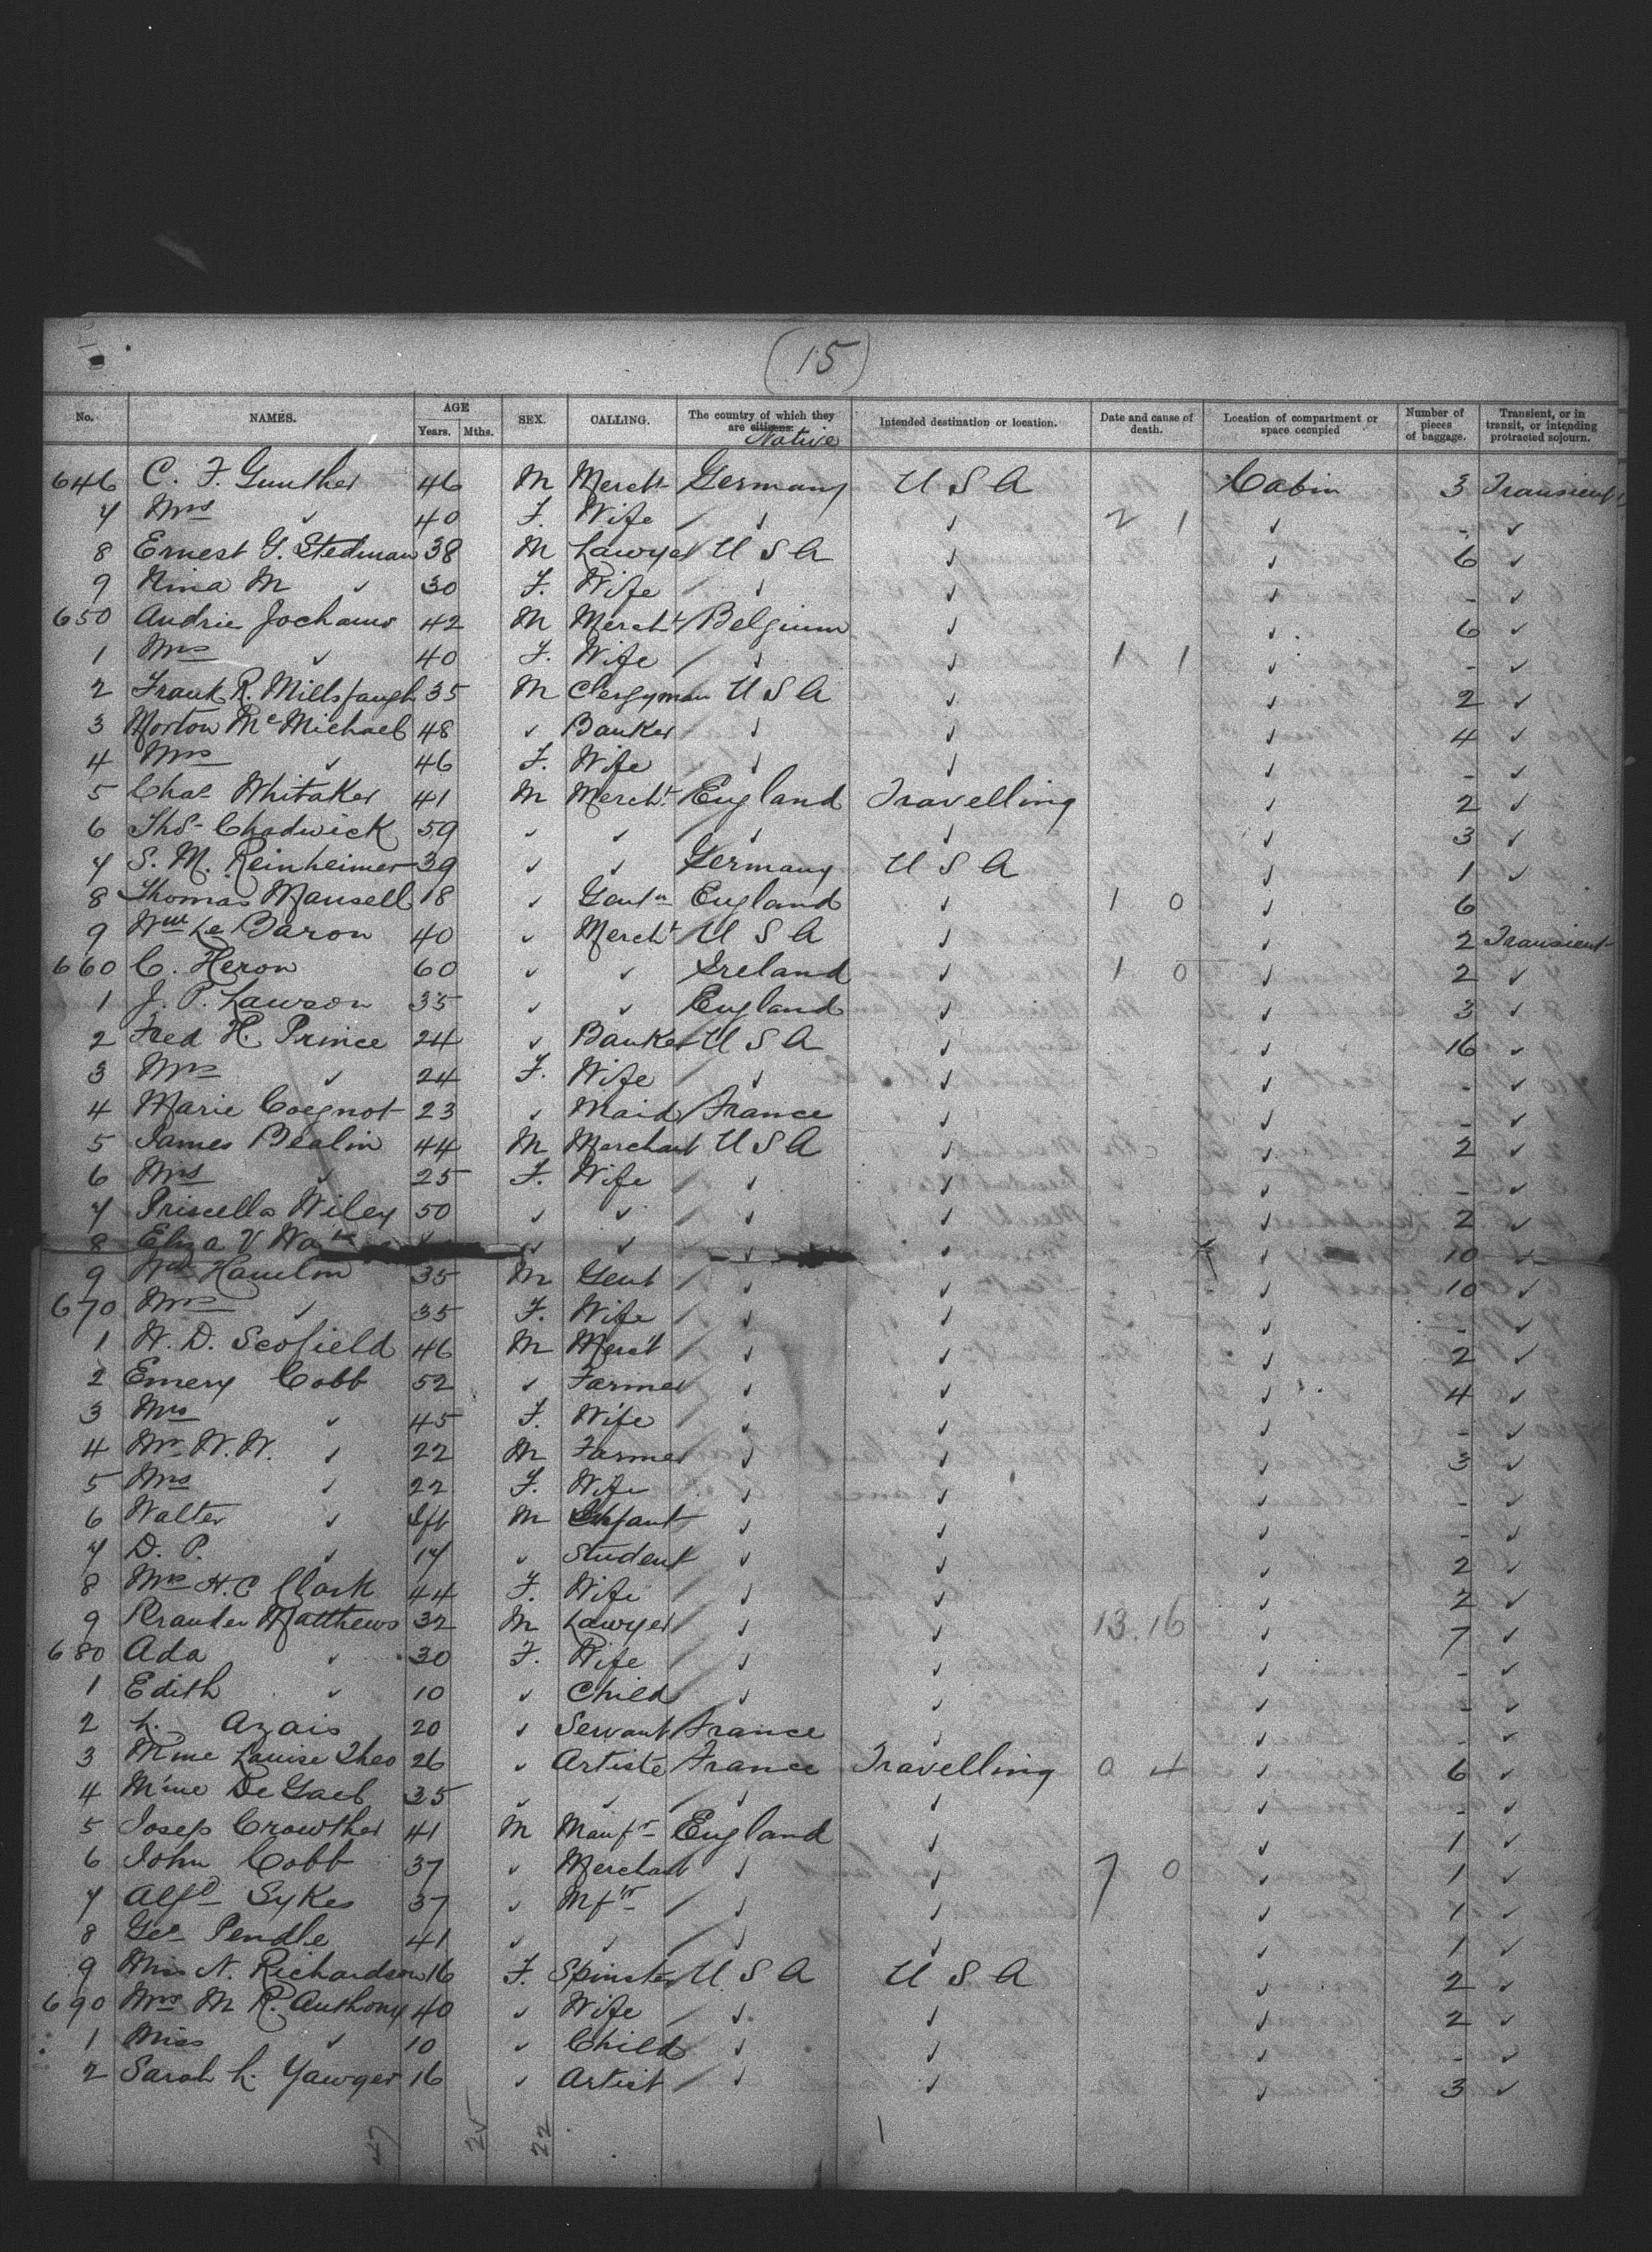 (15)
No. NAMES. AGE Years. Mths. SEX. CALLING. The country of which they are citizens. Native Intended destination or location. Date and cause of death. Location of compartment or space occupied Number of pieces of baggage. Transient, or in transit, or intending protracted sojourn.
646 C. F. Gunther 46 M Mercht Germany U S A Cabin 3 Transient
7 Mrs ✓ 40 F. Wife / ✓ ✓ 2 1 ✓ - ✓
8 Ernest G. Stedman 38 M Lawyer U S A ✓ ✓ 6 ✓
9 Nina M ✓ 30 F. Wife / ✓ ✓ ✓ - ✓
650 Andrie Jochams 42 M Mercht Belgium ✓ ✓ 6 ✓
1 Mrs ✓ 40 F. Wife / ✓ ✓ 1 1 ✓ - ✓
2 Frank R. Millspaugh 35 M Clergyman U S A ✓ ✓ 2 ✓
3 Morton McMichael 48 ✓ Banker / ✓ ✓ ✓ 4 ✓
4 Mrs ✓ 46 F. Wife / ✓ ✓ ✓ - ✓
5 Chas Whitaker 41 M Mercht England Travelling ✓ 2 ✓
6 Thos Chadwick 59 ✓ ✓ / ✓ ✓ ✓ 3 ✓
7 S. M. Reinheimer 39 ✓ ✓ Germany U S A ✓ 1 ✓
8 Thomas Mansell 18 ✓ Gentn England ✓ 1 0 ✓ 6
9 Wm Le Baron 40 ✓ Mercht U S A ✓ ✓ 2 Transient
660 C. Heron 60 ✓ ✓ Ireland ✓ 1 0 ✓ 2 ✓
1 J. P. Lawson 35 ✓ ✓ England ✓ ✓ 3 ✓
2 Fred H. Prince 24 ✓ Banker U S A ✓ ✓ 16 ✓
3 Mrs ✓ 24 F. Wife / ✓ ✓ ✓ - ✓
4 Marie Coegnot 23 ✓ Maid France ✓ ✓ - ✓
5 James Bealin 44 M Merchant U S A ✓ ✓ 2 ✓
6 Mrs ✓ 25 F. Wife / ✓ ✓ ✓ - ✓
7 Priscella Wiley 50 ✓ ✓ / ✓ ✓ ✓ 2 ✓
8 Eliza V ✓ ✓ ✓ ✓ ✓ 10 ✓
9 Wm Hamlin 35 M Gent / ✓ ✓ ✓ 10 ✓
670 Mrs ✓ 35 F. Wife / ✓ ✓ ✓ - ✓
1 W. D. Scofield 46 M Merct / ✓ ✓ ✓ 2 ✓
2 Emery Cobb 52 ✓ Farmer ✓ ✓ ✓ 4 ✓
3 Mrs ✓ 45 F. Wife / ✓ ✓ ✓ - ✓
4 Mr W. W. ✓ 22 M Farmer ✓ ✓ ✓ 3 ✓
5 Mrs ✓ 22 F. Wife ✓ ✓ ✓ - ✓
6 Walter ✓ Ift M Infant ✓ ✓ ✓ - ✓
7 D. P. ✓ 17 ✓ Student ✓ ✓ ✓ 2 ✓
8 Mrs H. C Clark 44 F. Wife / ✓ ✓ ✓ 2 ✓
9 Matthews 32 M Lawyer / ✓ ✓ 13.16 ✓ 7 ✓
680 Ada ✓ 30 F. Wife / ✓ ✓ ✓ - ✓
1 Edith ✓ 10 ✓ Child ✓ ✓ ✓ - ✓
2 L. Azais 20 ✓ Servant France ✓ ✓ - ✓
3 Mme Louise Theo 26 ✓ Artiste France Travelling 0 4 ✓ 6 ✓
4 Mme De 35 ✓ ✓ / ✓ ✓ ✓ - ✓
5 Josep Crowther 41 M Manfr England ✓ ✓ 1 ✓
6 John Cobb 37 ✓ Merchant ✓ ✓ 7 0 ✓ 1 ✓
7 Alfd Sykes 37 ✓ Mfr / ✓ ✓ ✓ 1 ✓
8 Geo Pendle 41 ✓ ✓ / ✓ ✓ ✓ 1 ✓
9 Miss N. Richardson 16 F. Spinster U S A U S A ✓ 2 ✓
690 Mrs M R. Anthony 40 ✓ Wife / ✓ ✓ ✓ 2 ✓
1 Miss ✓ 10 ✓ Child ✓ ✓ ✓ - ✓
2 Sarah L. Yawger 16 ✓ Artist / ✓ ✓ ✓ 3 ✓
47 25 22